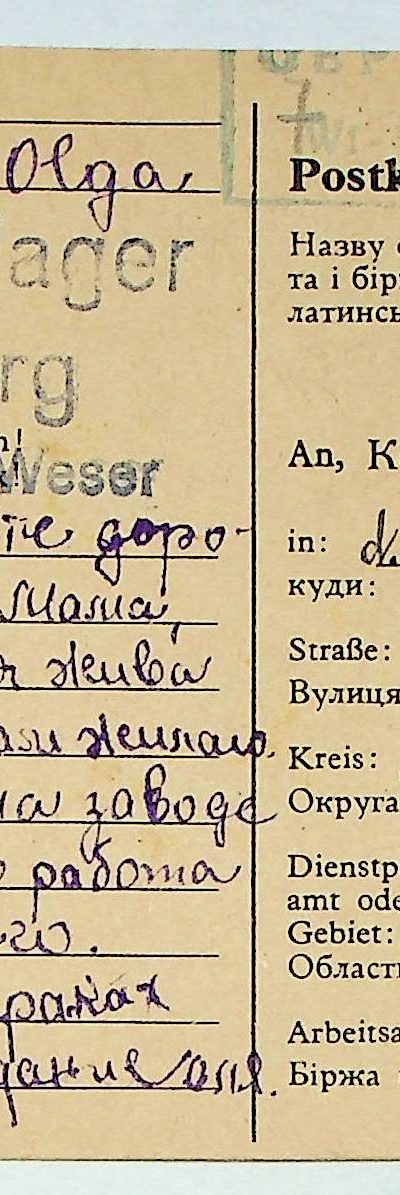 Olga,
ager
rg
n!
Weser
те доро-
Мама,
жива
вам желаю.
на заводе
работа
ого.
раках
дание вам.
Postk
Назву
та і бір
латинсь
An, К
in:
куди:
Straße:
Вулиця
Kreis:
Округа
Dienstp
amt ode
Gebiet:
Област
Arbeitsa
Біржа